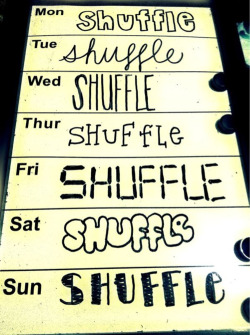 Mon shuffle
Tue shuffle
Wed SHUFFLE
Thur SHUFFLE
Fri SHUFFLE
Sat SHUFFLE
Sun SHUFFLE